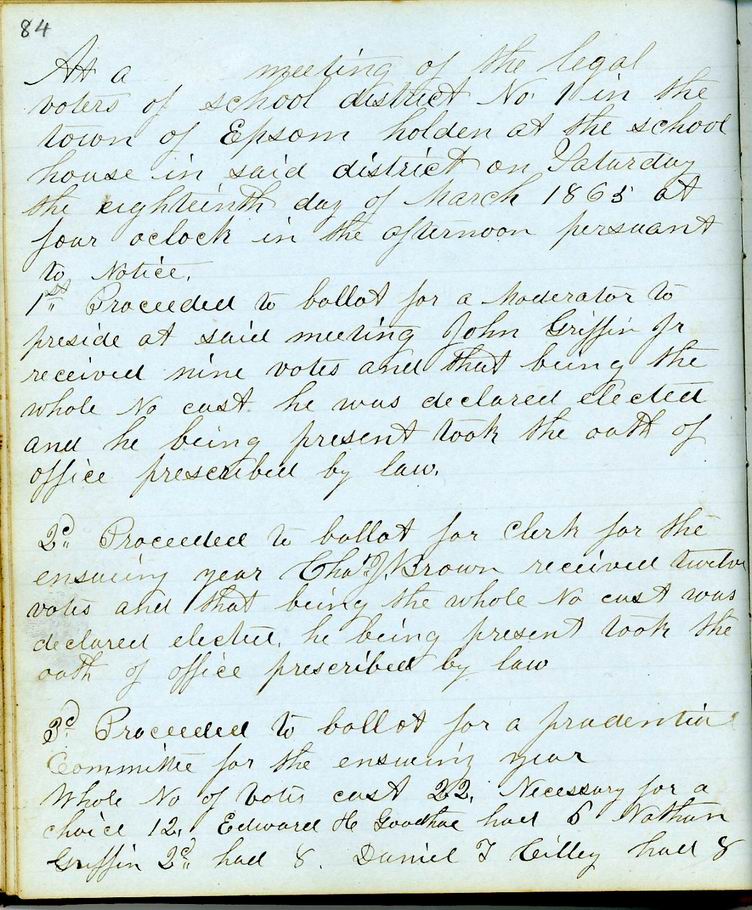 84
At a meeting of the legal
voters of school district No 1 in the
town of Epsom holden at the school
house in said district on Saturday
the eighteinth day of March 1865 at
four oclock in the afternoon persuant
to Notice.
1st Proceeded to ballot for a Moderator to
preside at said meeting John Griffin Jr
received nine votes and that being the
whole No cast he was declared elected
and he being present took the oath of
office prescribed by law.
2d Proceeded to ballot for Clerk for the
ensueing year Chas J. Brown received twelve
votes and that being the whole No cast was
declared elected, he being present took the
oath of office prescribed by law
3d Proceeded to ballot for a prudential
Committee for the ensueing year
Whole No of Votes cast 22. Necessary for a
choice 12. Edward H had 6 Nathan
Griffin 2d had 8. Daniel T Cilley had 8